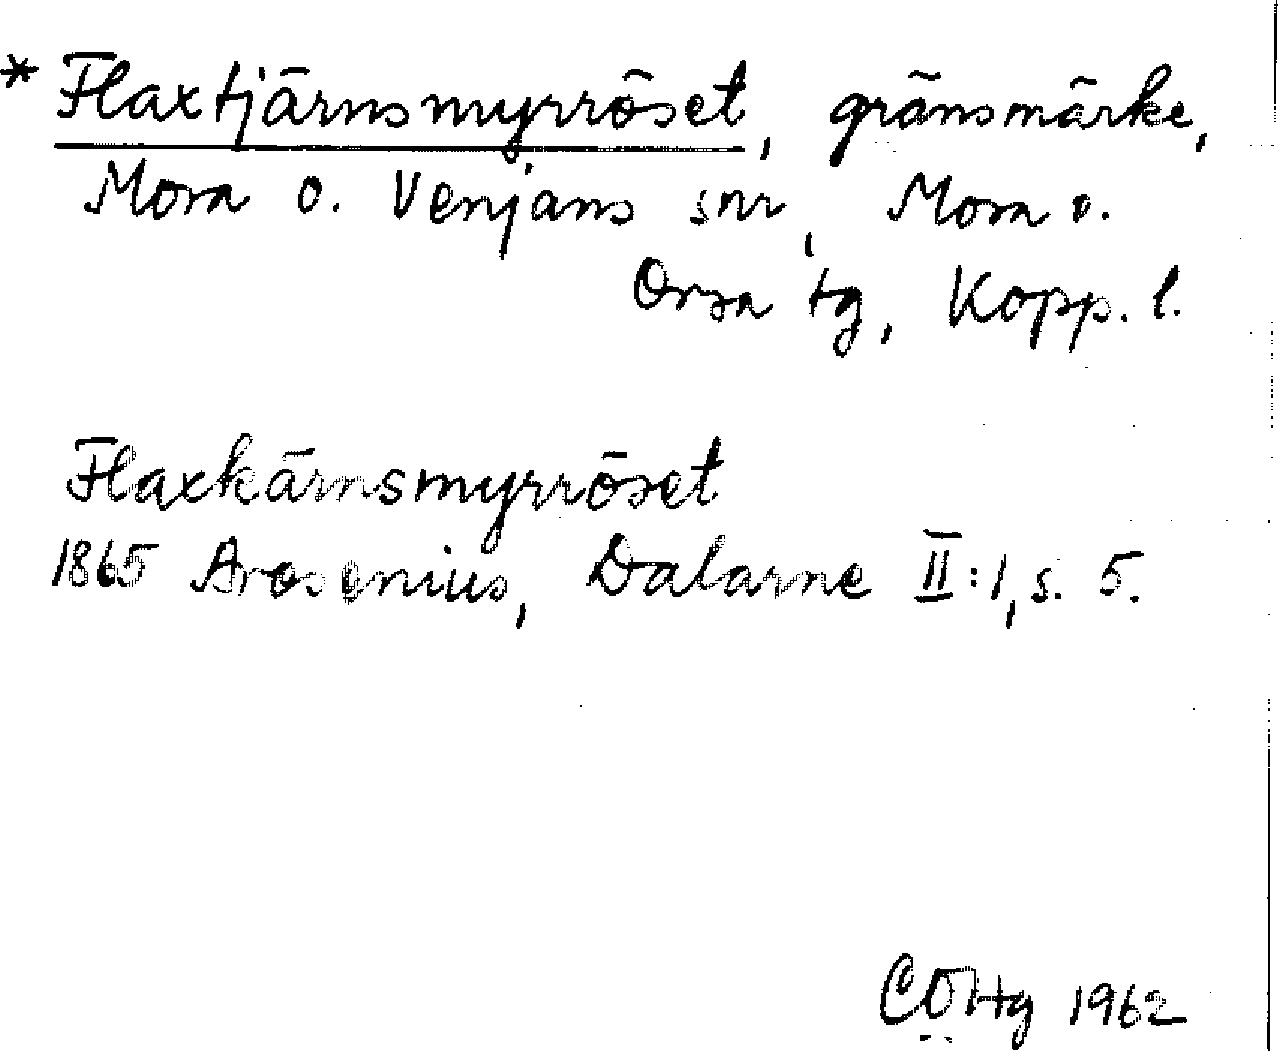 * Flaxtjärnsmyrröset, gränsmärke,
Mora o. Venjans snr, Mora o.
Orsa tg, Kopp. l.
Flaxkärnsmyrröset
1865 Arosenius, Dalarne II:1, s. 5.
CÖHg 1962